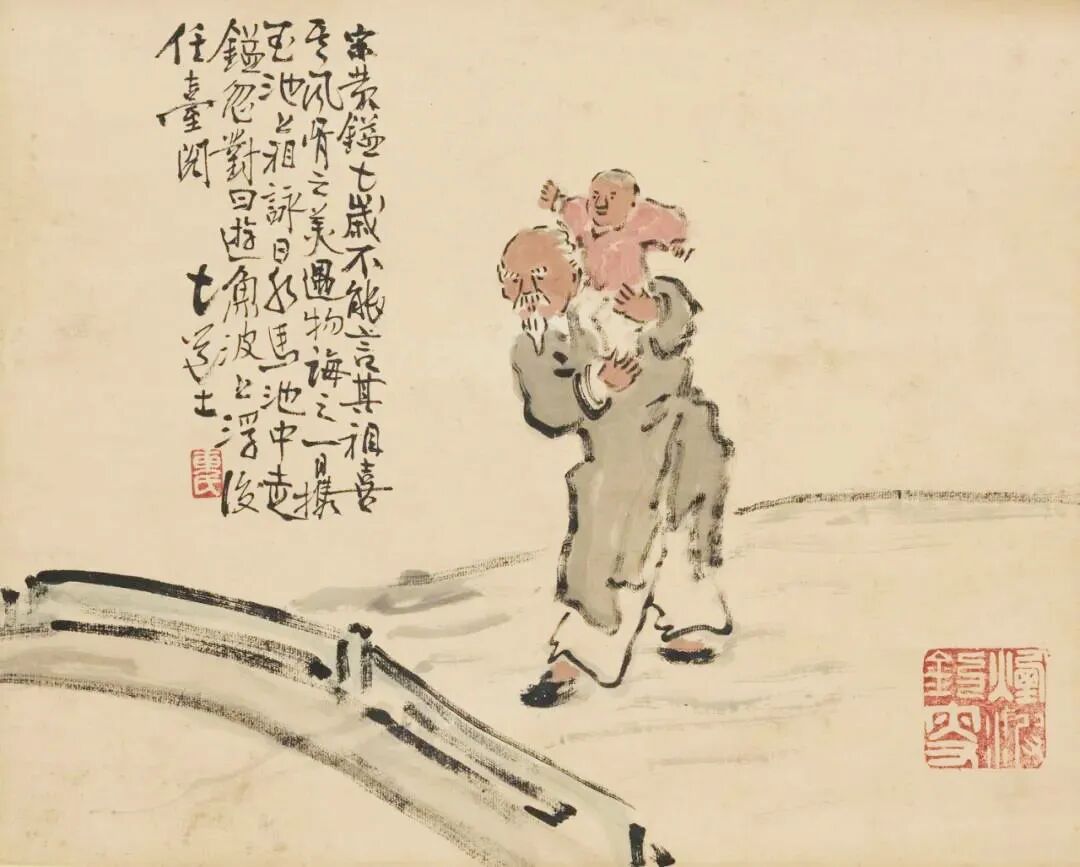 宋黄鎰七歲不能言其祖喜
其風骨之美遇物誨之一日攜
至池上祖詠曰水馬池中走
鎰忽對曰遊魚波上浮後
任臺閣
七道士